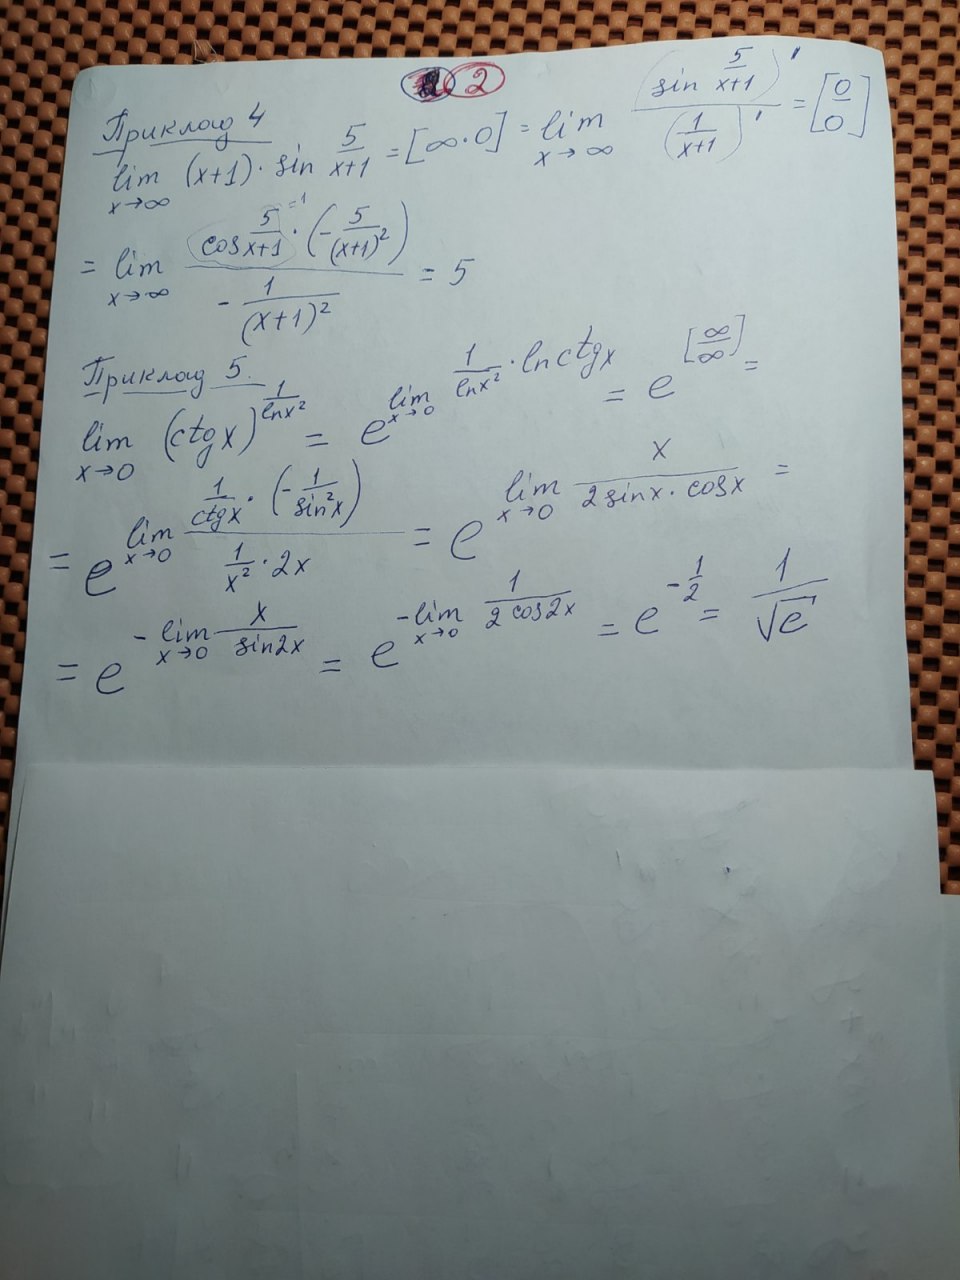 2
Приклад 4
lim x→∞ (x+1)·sin 5/(x+1) = [∞·0] = lim x→∞ (sin 5/(x+1))' / (1/(x+1))' = [0/0]
= lim x→∞ (cos 5/(x+1) =1 · (-5/(x+1)²)) / (-1/(x+1)²) = 5
Приклад 5.
lim x→0 (ctgx)^(1/lnx²) = e^(lim x→0 1/lnx² · lnctgx) = e^[∞/∞] =
= e^(lim x→0 (1/ctgx · (-1/sin²x)) / (1/x² · 2x)) = e^(lim x→0 x/(2sinx·cosx)) =
= e^(-lim x→0 x/sin2x) = e^(-lim x→0 1/(2cos2x)) = e^(-1/2) = 1/√e